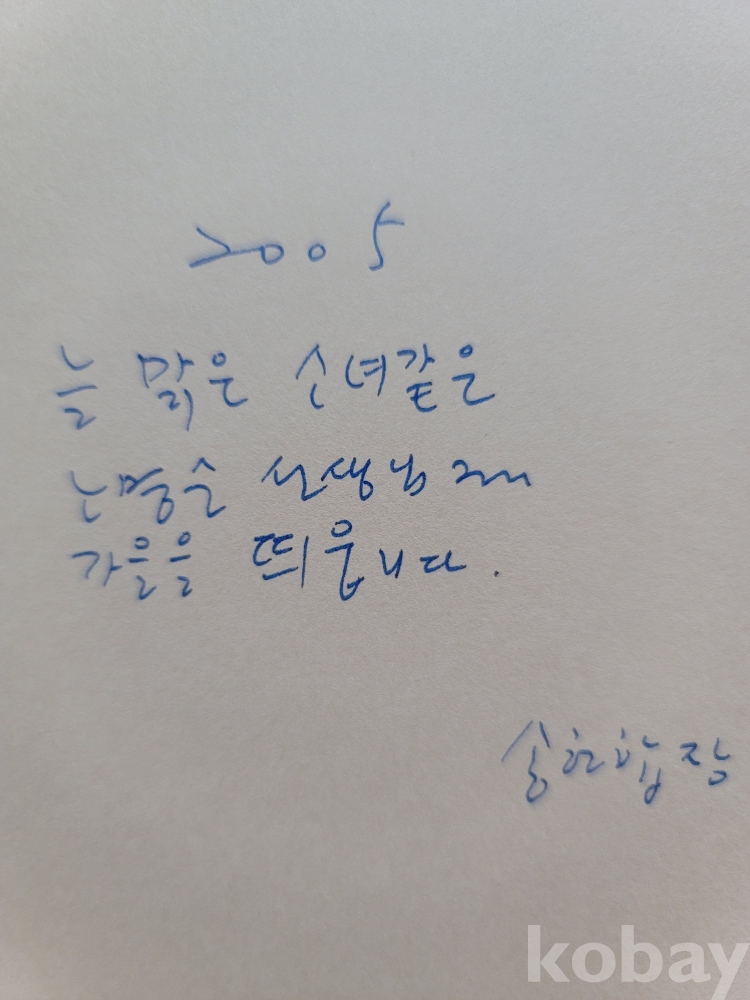 2005
늘 맑은 소녀같은
노명순 선생님께
가을을 띄웁니다.
합장
kobay